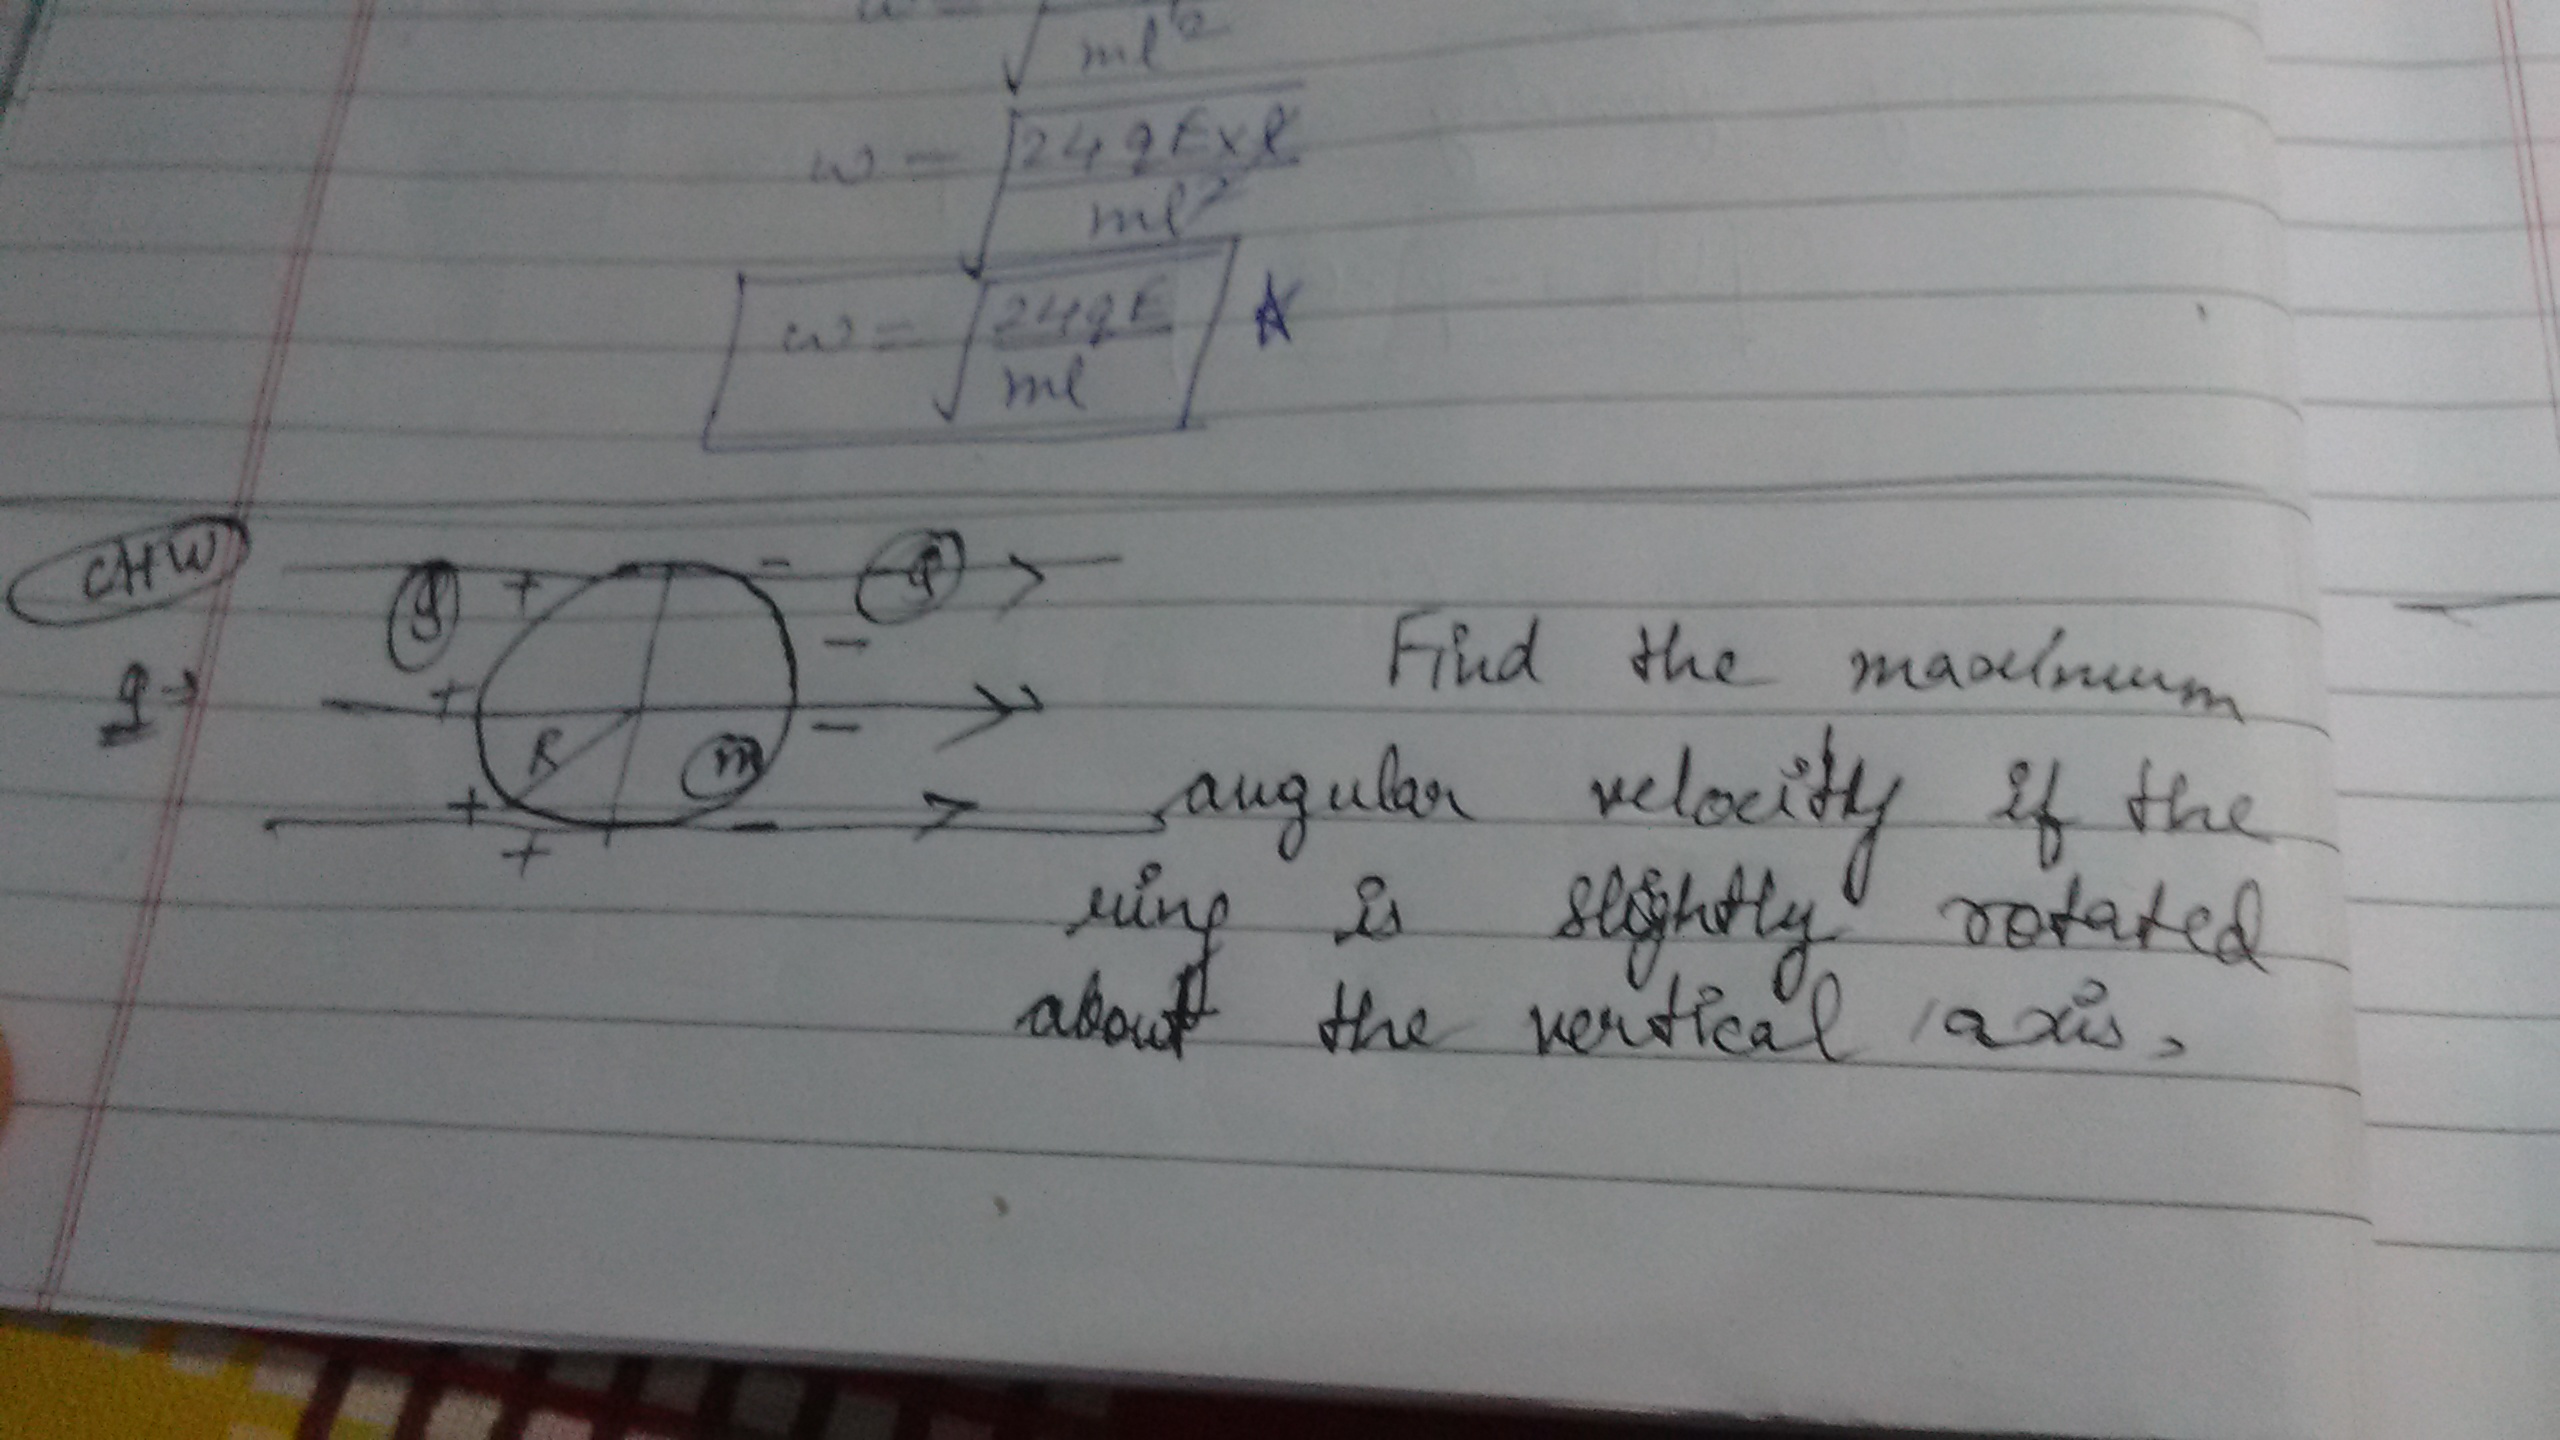 ml²
ω = √24qE×l
ml²
ω = √24qE
ml
CHW
q + - -q
Find the maximum
+ -
R m
+ -
angular velocity if the
+ -
+
ring is slightly rotated
about the vertical axis,